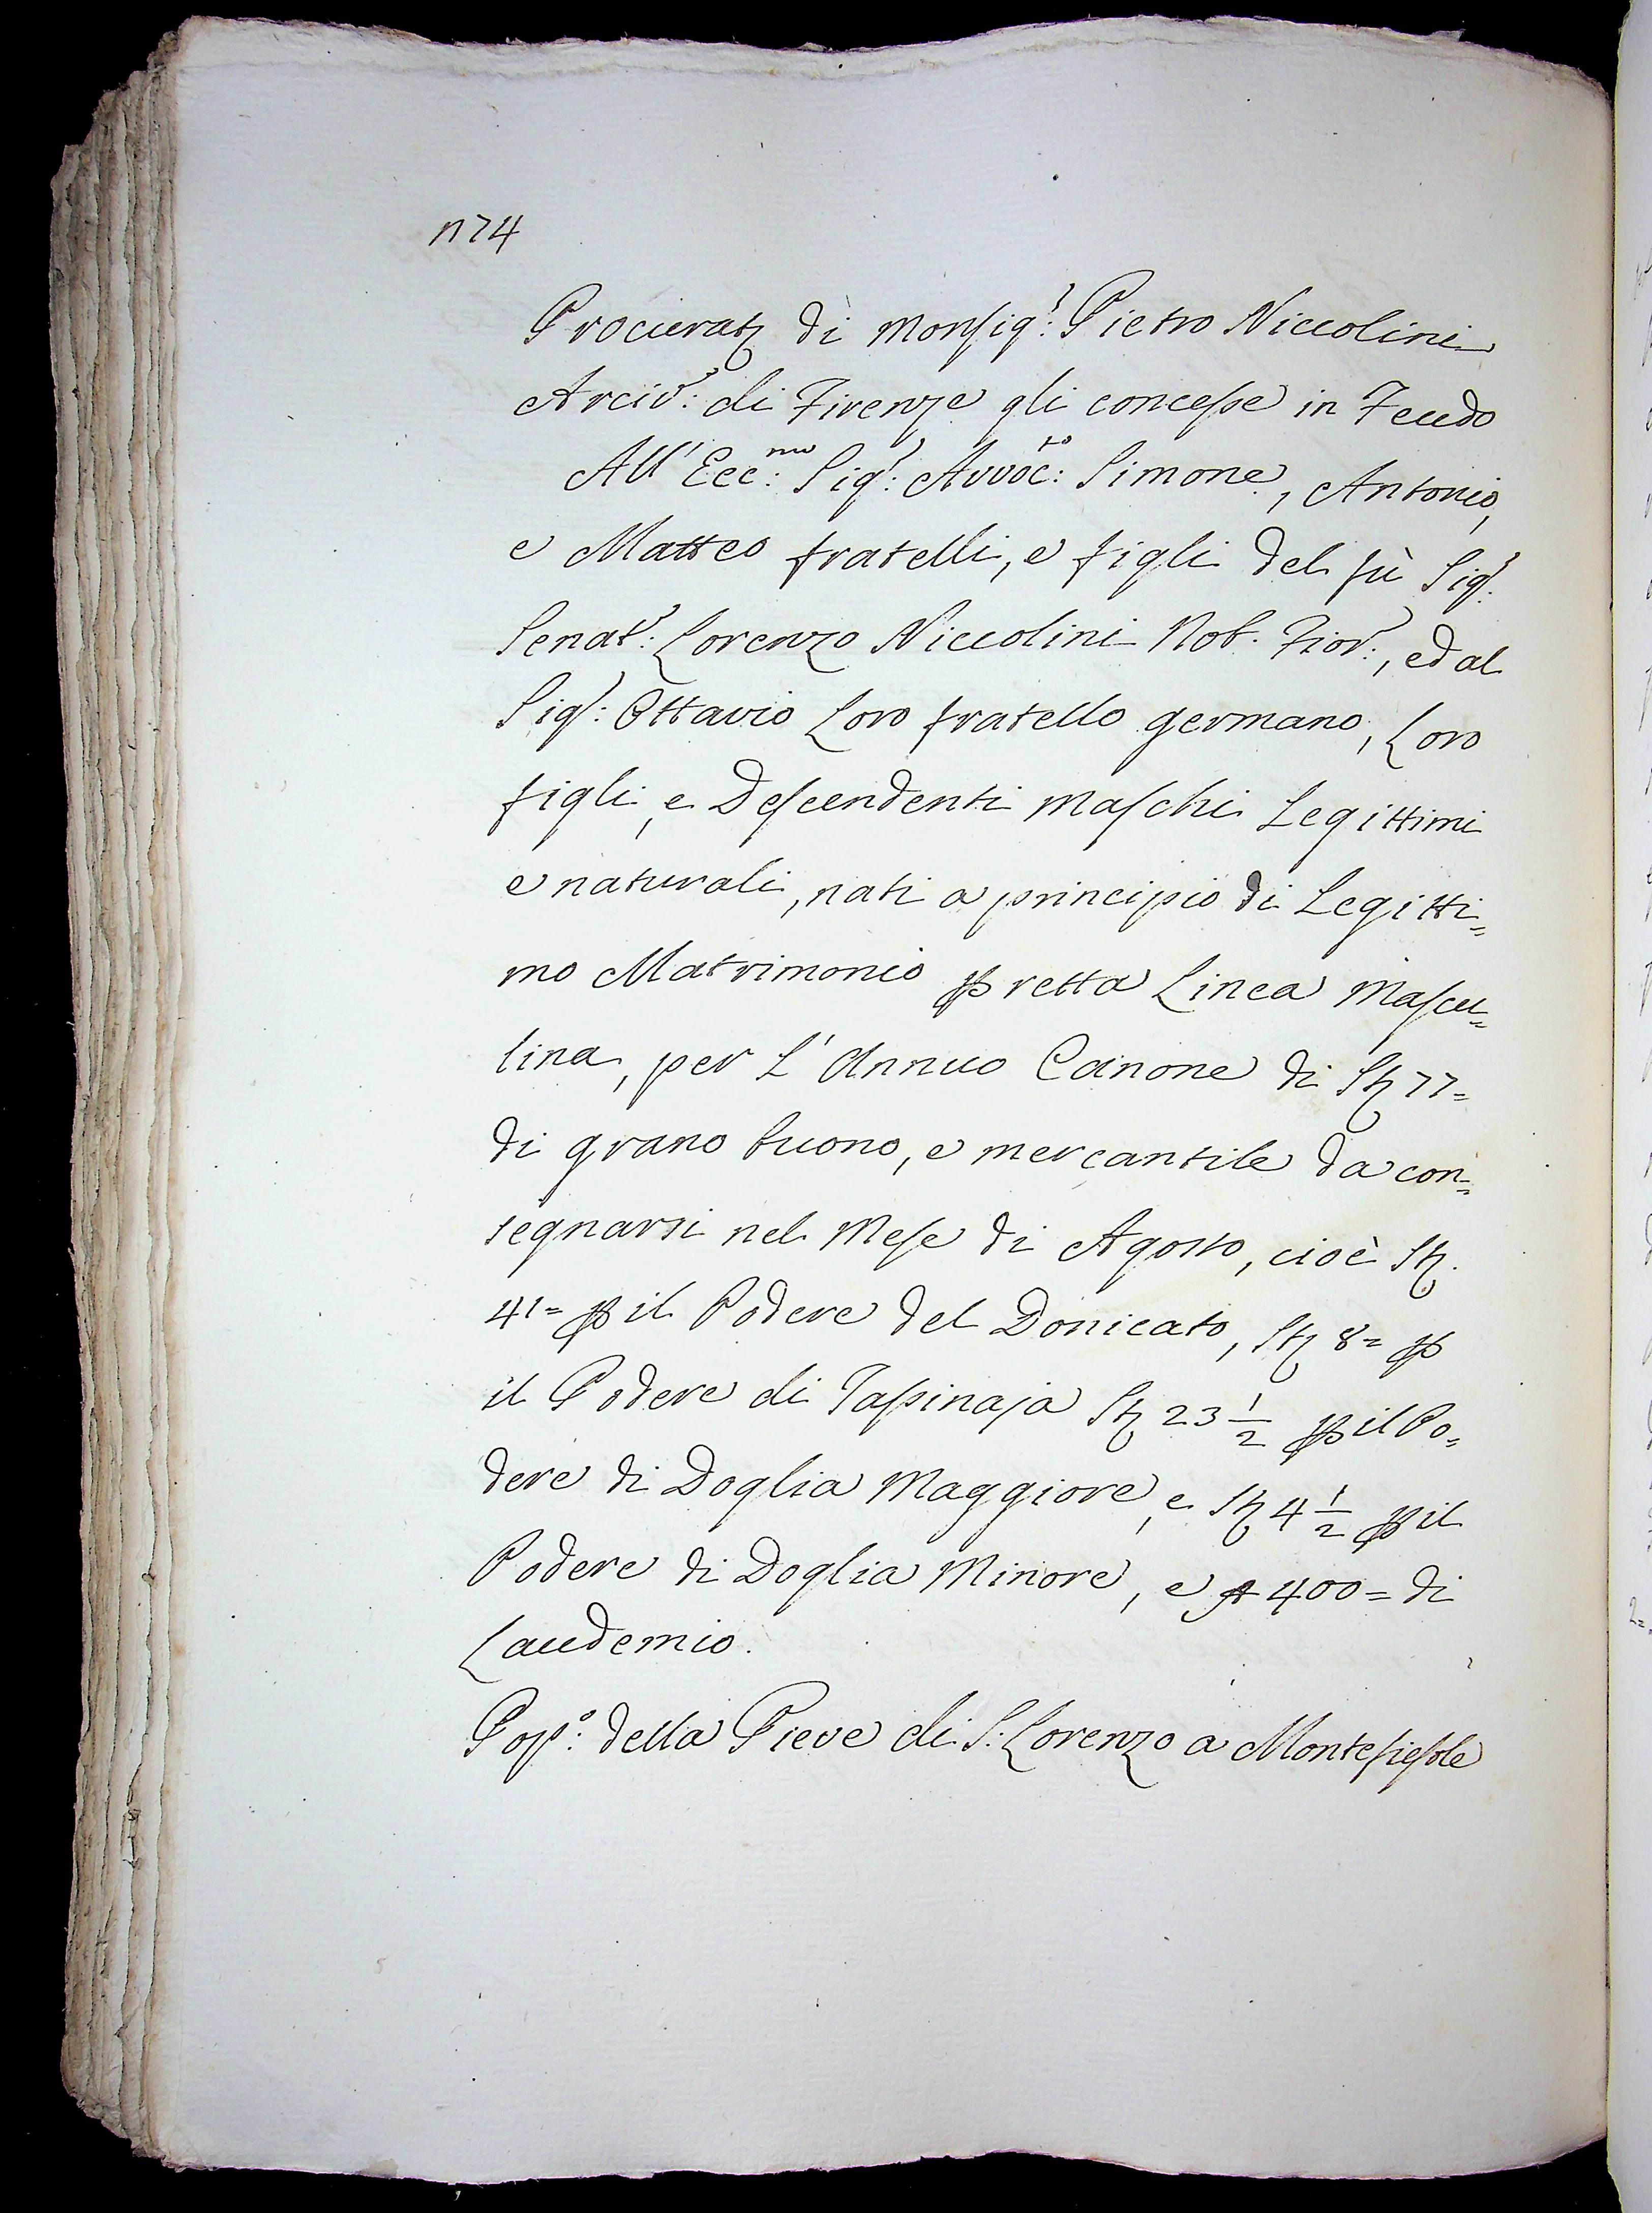 n74
Procurat.e di Monsig.r: Pietro Niccolini
Arciv.o: di Firenze gli concesse in Feudo
All' Ecc:mo Sig.r: Avvoc:to Simone, Antonio,
e Matteo fratelli, e figli del fù Sig.r:
Senat.r: Lorenzo Niccolini Nob. Fior.o:, ed al
Sig.r: Ottavio Loro fratello germano, Loro
figli, e Descendenti Maschi Legittimi
e naturali, nati a principio di Legitti=
mo Matrimonio p retta Linea Mascu=
lina, per L'Annuo Canone di St 77=
di grano buono, e mercantile da con=
segnarsi nel Mese di Agosto, cioè St
41= p il Podere del Donicato, St 8= p
il Podere di Tassinaja St 23 1/2 p il Po=
dere di Doglia Maggiore, e St 4 1/2 p il
Podere di Doglia Minore, e 400= di
Laudemio.
Pop.o: della Pieve di S: Lorenzo a Montefiesole